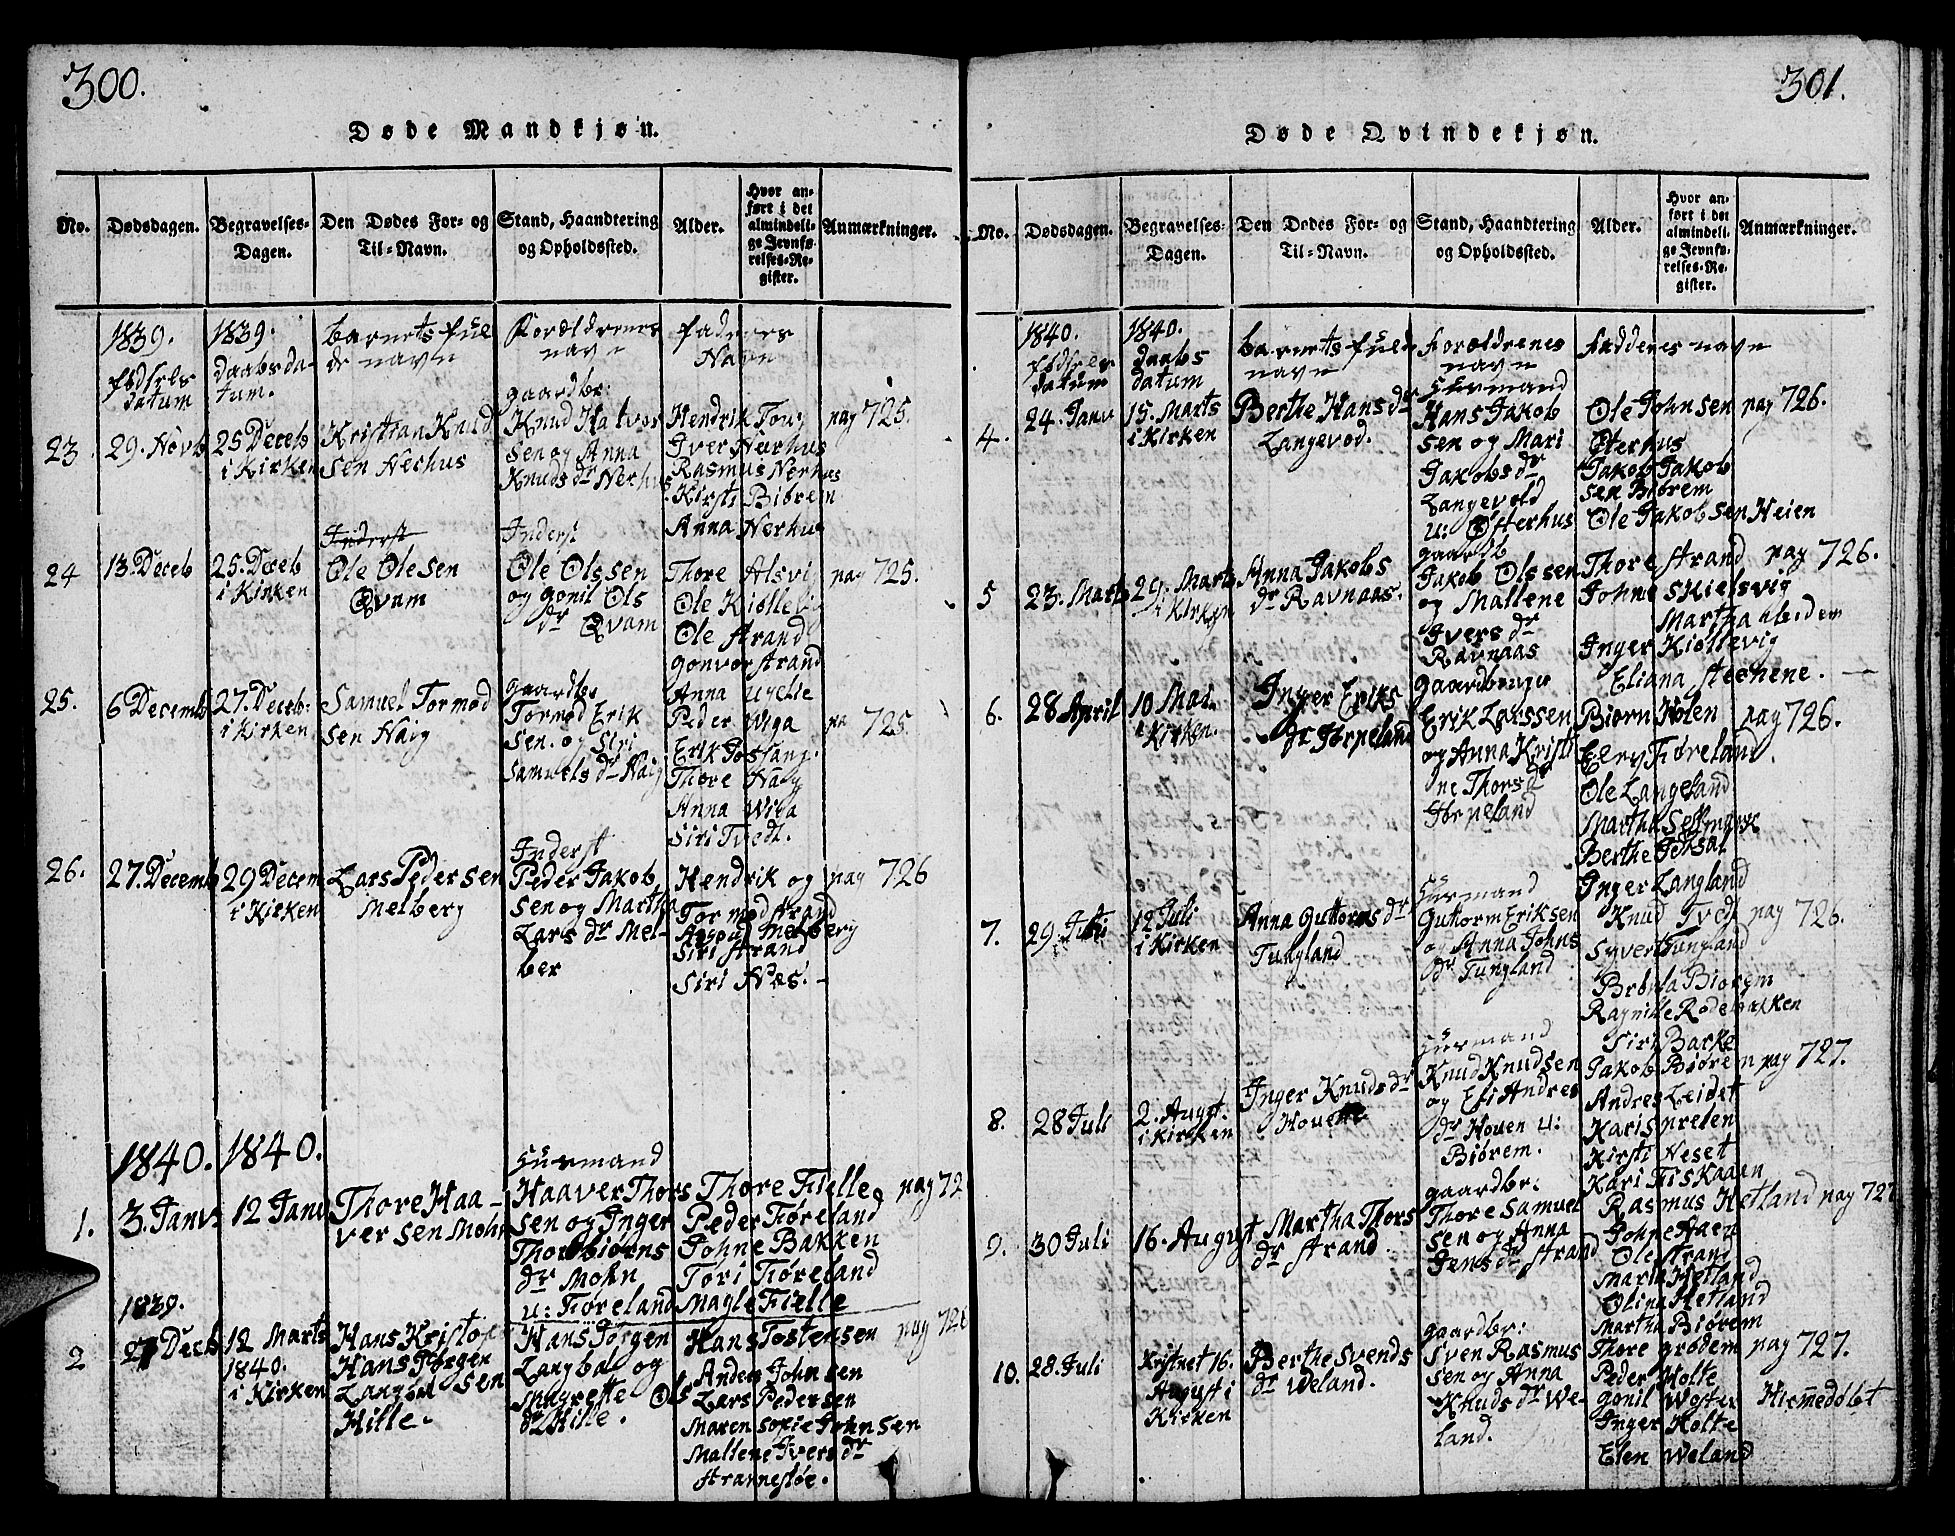 300.
Døde Mandkjøn.
No.
Dødsdagen.
Begravelses-
Dagen.
Den Dødes For- og
Til-Navn.
Stand, Haandtering
og Opholdssted.
Alder.
Hvor an-
ført i det
almindeli-
ge Jevnfø-
relses-Re-
gister.
Anmærkninger.
1839.
fødsels
datum
1839.
daabsda-
tum.
barnets ful
de navn
Forældrenes
navn
fadernes
Navn
23
29. Novb
25 Deceb
i Kirken
Kristian Knud
sen Nerhus
gaardbr:
Knud Halvor
sen og Anna
Knuds dr Nerhus
Hendrik Tou
Iver Nerhus
Rasmus Nerhus
Kirsti Biørem
Anna Nerhus
pag 725.
24
13. Deceb
25. Deceb
i Kirken
Inderst
Ole Olesen
Qvam
Inderst
Ole Olssen
og Gonil Ols
dr Qvam
Thore Alsvig
Ole Kiøllevi
Ole strand
Gonvor strand
pag 725.
25.
6 Decemb
27. Deceb.
i Kirken
Samuel Tormod
sen Haig
Gaardbr
Tormod Erik
sen. og Siri
Samuels dr Haig
Anna
Peder Wiga
Erik Fossang.
Thore Haig
Anna Wiga
Siri Tvedt.
pa 725.
26.
27. Decemb
29 Decem
i Kirken
Lars Pedersen
Melberg
Inderst
Peder Jakob
sen og Martha
Lars dr Mel-
ber
Hendrik og
Tormod strand
Melberg
Siri strand
Siri Næs. -
pag 726
1840.
1840.
1.
3. Janv.
12 Janv
Thore Haa-
ver sen Mohn
Huusmand
Haaver Thors
sen og Inger
Thorbiørns
dr Mohn
u: Føreland
Thore Fielle
Peder Føreland
Johne Bakken
Tori Føreland
Magle Fielle
pag 72
1839.
2
27 Decb
12 Marts
1840.
i Kirken
Hans Kristof
Hans Jørgen
Langbal sen
Hille.
Hans Jørgen
Langbal og
Magrette Ols
dr Hille.
Hans Tostensen
Anders John sen
Lars Pedersen
Maren sofie Johnsen
Mallene Ivers dr
pag 726
301.
Døde Qvindekjøn.
No.
Dødsdagen.
Begravelses-
Dagen.
Den Dødes For- og
Til-Navn.
Stand, Haandtering
og Opholdssted.
Alder.
Hvor an-
ført i det
almindeli-
ge Jevnfø-
relses-Re-
gister.
Anmærkninger.
1840.
fødsels
datum
1840.
daabs
datum
barnets fulde
navn
Forældrenes
navn
Faddernes navn
4.
24. Janv
15. Marts
i Kirken
Berthe Hans dr
Langevod.
Huusmand
Hans Jakob
sen og Mari
Jakobs dr
Langevold
u: Østerhus
Ole Johnsen
Østerhus
Jakob Jakob
sen Biørem
Ole Jakobsen Heien
pag 726.
5
23. Marts
29. Marts
i Kirken
Anna Jakobs
dr Ravnaas.
gaardb
Jakob Olssen
og Mallene
Ivers dr
Ravnaas
Thore strand
Johne Skielsvig
Martha
Inger Kiøllevig
Eliana steenene. —
pag 726.
6.
28 April
10 Mai.
i Kirken.
Inger Eriks
dr Jørpeland
Gaardbruger
Erik Larssen
og Anna Kristi
ne Thors dr
Jørpeland
Biørn Holen
Elery Føreland.
Ole Langeland
Martha
Berthe Jøssal
Inger Langland
pag 726.
7.
29. Juni
12 Juli
i Kirken
Anna Guttorms dr
Tungland
Huusmand
Guttorm Eriksen
og Anna Johns
dr Tungland
Knud Tvedt
Syvert Tungland
Brønla Biørem
Ragnille Rødebakken
Siri Barke
pag 726.
8.
28 Juli
2. Augst.
i Kirken
Inger Knuds dr
Houen
Huusmand
Knud Knudsen
og Eli Andres
dr Houen u:
Biørem.
Jakob Biørem
Andres Leidet
Kari Prelen
Kirsti Neset
Kari Fiskaaan
pag 727.
9.
30 Juli
16. August
Martha Thors
dr strand
gaardbr:
Thore Samuel
sen og Anna
Jens dr strand
Rasmus Hetland
Johne Haen
Ole strand
Marta Hetland
Olina Hetland
Martha Biørem
pag 727
10.
28. Juli
Kristnet 16.
August i
Kirken
Berthe Svends
dr Weland.
gaardbr:
Sven Rasmus
sen og Anna
Knuds dr We-
land.
Thore grødem
Peder Holte
Gonil Woster
Inger Holte
Elen Weland
pag 727.
Hiemmedøbt